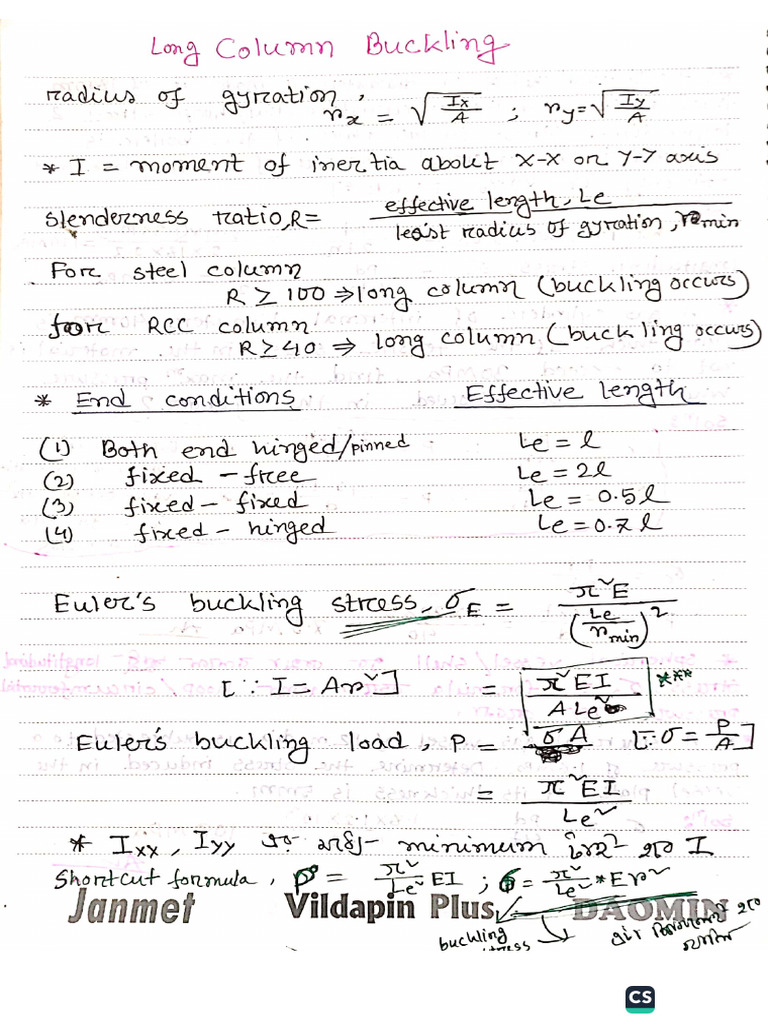 Long Column Buckling
radius of gyration, r_x = √(Ix/A) ; r_y = √(Iy/A)
* I = moment of inertia about X-X or Y-Y axis
Slenderness ratio, R = effective length, Le / least radius of gyration, r_min
For steel column
R ≥ 100 ⇒ long column (buckling occurs)
for RCC column
R ≥ 40 ⇒ long column (buckling occurs)
* End conditions Effective length
(1) Both end hinged/pinned Le = l
(2) fixed - free Le = 2l
(3) fixed - fixed Le = 0.5l
(4) fixed - hinged Le = 0.7l
Euler's buckling stress, σ_E = π²E / (Le/r_min)²
[∵ I = Ar²] = π²EI / A Le² ***
Euler's buckling load, P = σA [∵ σ = P/A]
= π²EI / Le²
* Ixx, Iyy এর মধ্যে minimum টাই হবে I
Shortcut formula, P = π²/Le² EI ; σ = π²/Le² * Er²
Janmet Vildapin Plus DAOMIN
buckling
stress
CS